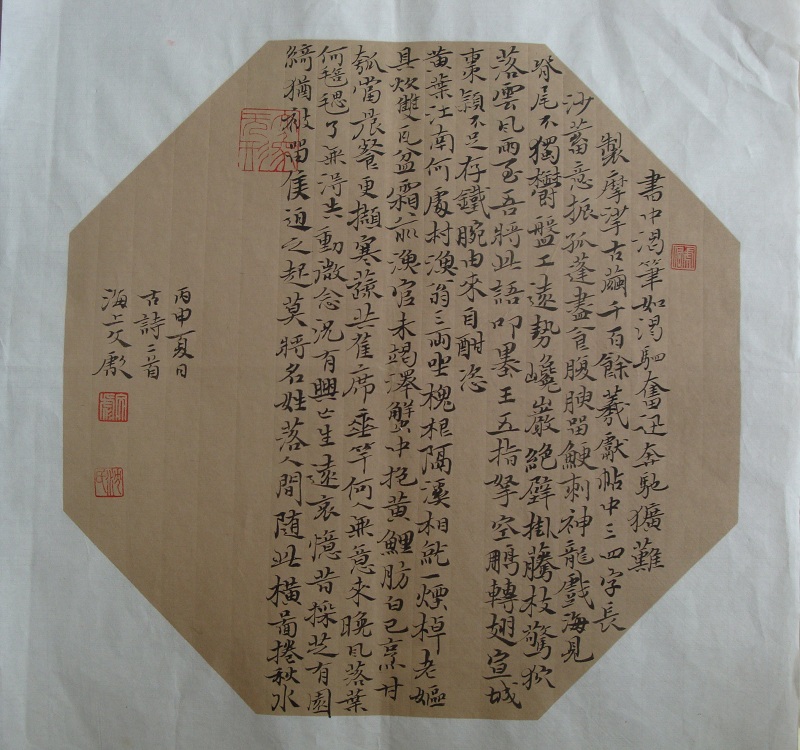 書中渴筆如渴馳奮迅奔馳獷難
製摩挲古繭千百餘羲獻帖中三四字長
沙蓄意振孤蓬盡食腹腴留鯁刺神龍戲海見
脊尾不獨鬱盤工遠勢巉巖絕壁掛騰枝驚狖
落雲風雨至吾將此語叩墨王五指拏空鵬轉翅宣城
棗穎不足存鐵腕由來自酣恣
黃葉江南何處村漁翁三兩坐槐根隔溪相就一煙棹老嫗
具炊雙瓦盆霜前漁官未竭澤蟹中抱黃鯉肪白已烹甘
瓠當晨餐更擷寒蔬共崔席垂竿何人無意來晚風落葉
何毰毸了無得失動微念況有興亡生遠哀憶昔採芝有園
綺猶被留侯迫之起莫將名姓落人間隨此橫圖捲秋水
丙申夏日
古詩二首
海上文